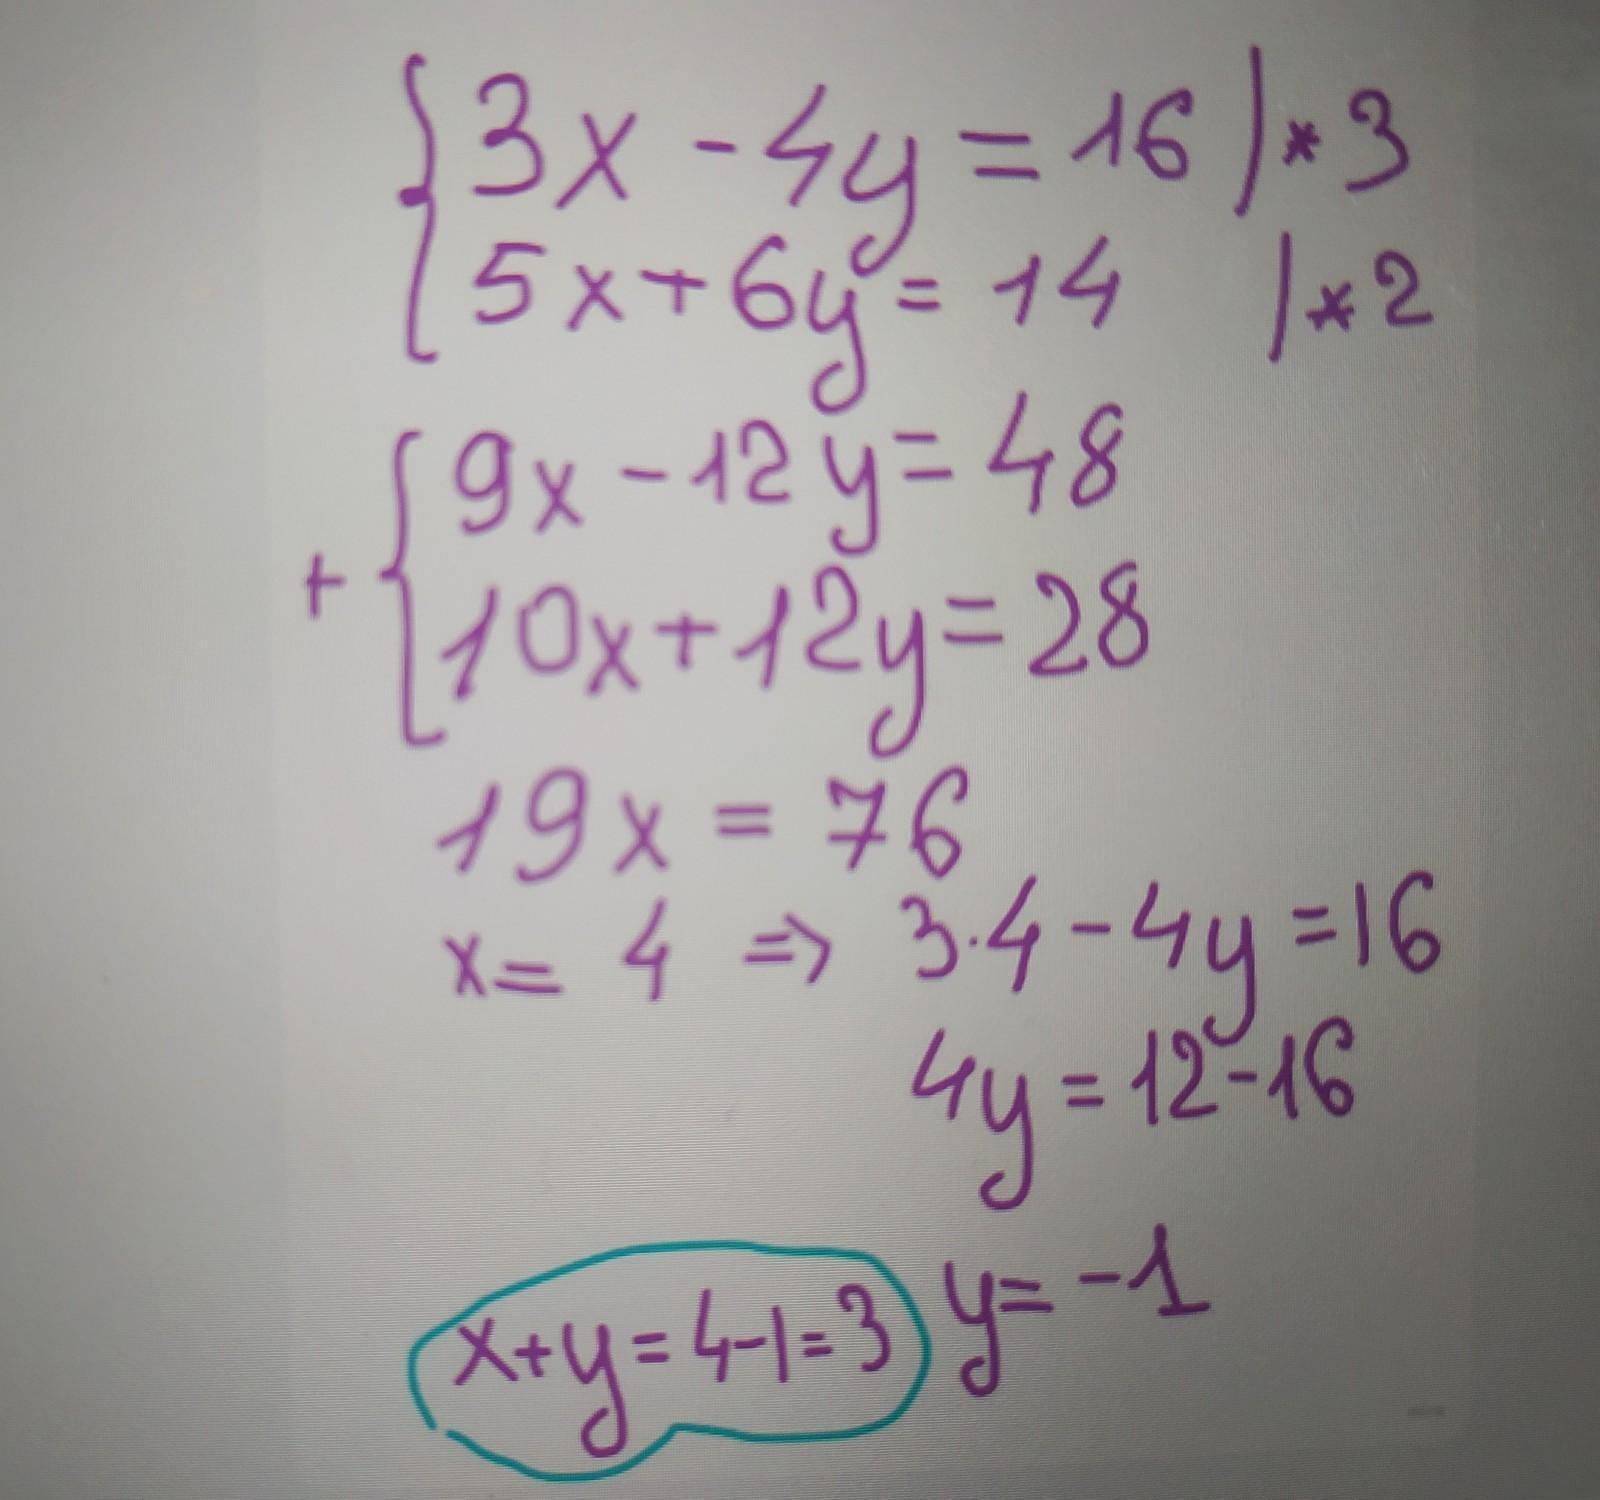 {3x - 4y = 16 | * 3
5x + 6y = 14 | * 2
+ {9x - 12y = 48
10x + 12y = 28
19x = 76
x = 4 ⇒ 3·4 - 4y = 16
4y = 12 - 16
y = -1
x+y = 4-1 = 3